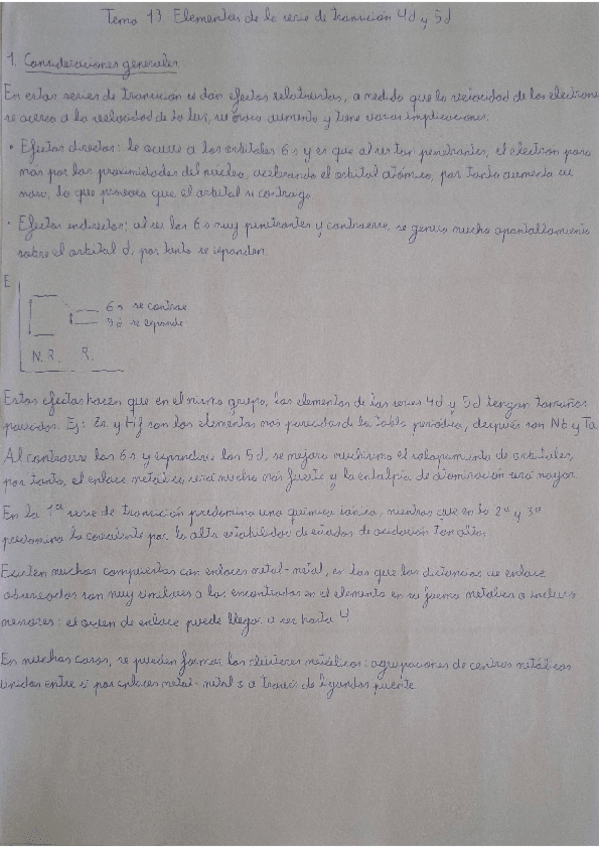 Tema 13. Elementos de la serie de transición 4d y 5d
1. Consideraciones generales.
En estas series de transición se dan efectos relativistas, a medida que la velocidad de los electrones
se acerca a la velocidad de la luz, su masa aumenta y tiene varias implicaciones:
• Efectos directos: le ocurre a los orbitales 6s y es que al ser tan penetrantes, el electrón pasa
más por las proximidades del núcleo, acelerando el orbital atómico, por tanto aumenta su
masa, lo que provoca que el orbital se contraiga
• Efectos indirectos: al ser los 6s muy penetrantes y contraerse, se genera mucho apantallamiento
sobre el orbital d, por tanto se expanden.
E
6s se contrae
5d se expande
N.R. R.
Estos efectos hacen que en el mismo grupo, los elementos de las series 4d y 5d tengan tamaños
parecidos. Ej: Zr y Hf son los elementos más parecidos de la tabla periódica, después son Nb y Ta.
Al contraerse los 6s y expandirse los 5d, se mejora muchísimo el solapamiento de orbitales,
por tanto, el enlace metálico será mucho más fuerte y la entalpía de atomización será mayor.
En la 1ª serie de transición predomina una química iónica, mientras que en la 2ª y 3ª
predomina la covalente por la alta estabilidad de estados de oxidación tan altos.
Existen muchos compuestos con enlaces metal-metal, en los que las distancias de enlace
observadas son muy similares a las encontradas en el elemento en su forma metálica o incluso
menores: el orden de enlace puede llegar a ser hasta 4
En muchos casos, se pueden formar los clústeres metálicos: agrupaciones de centros metálicos
unidos entre sí por enlaces metal-metal o a través de ligandos puente.